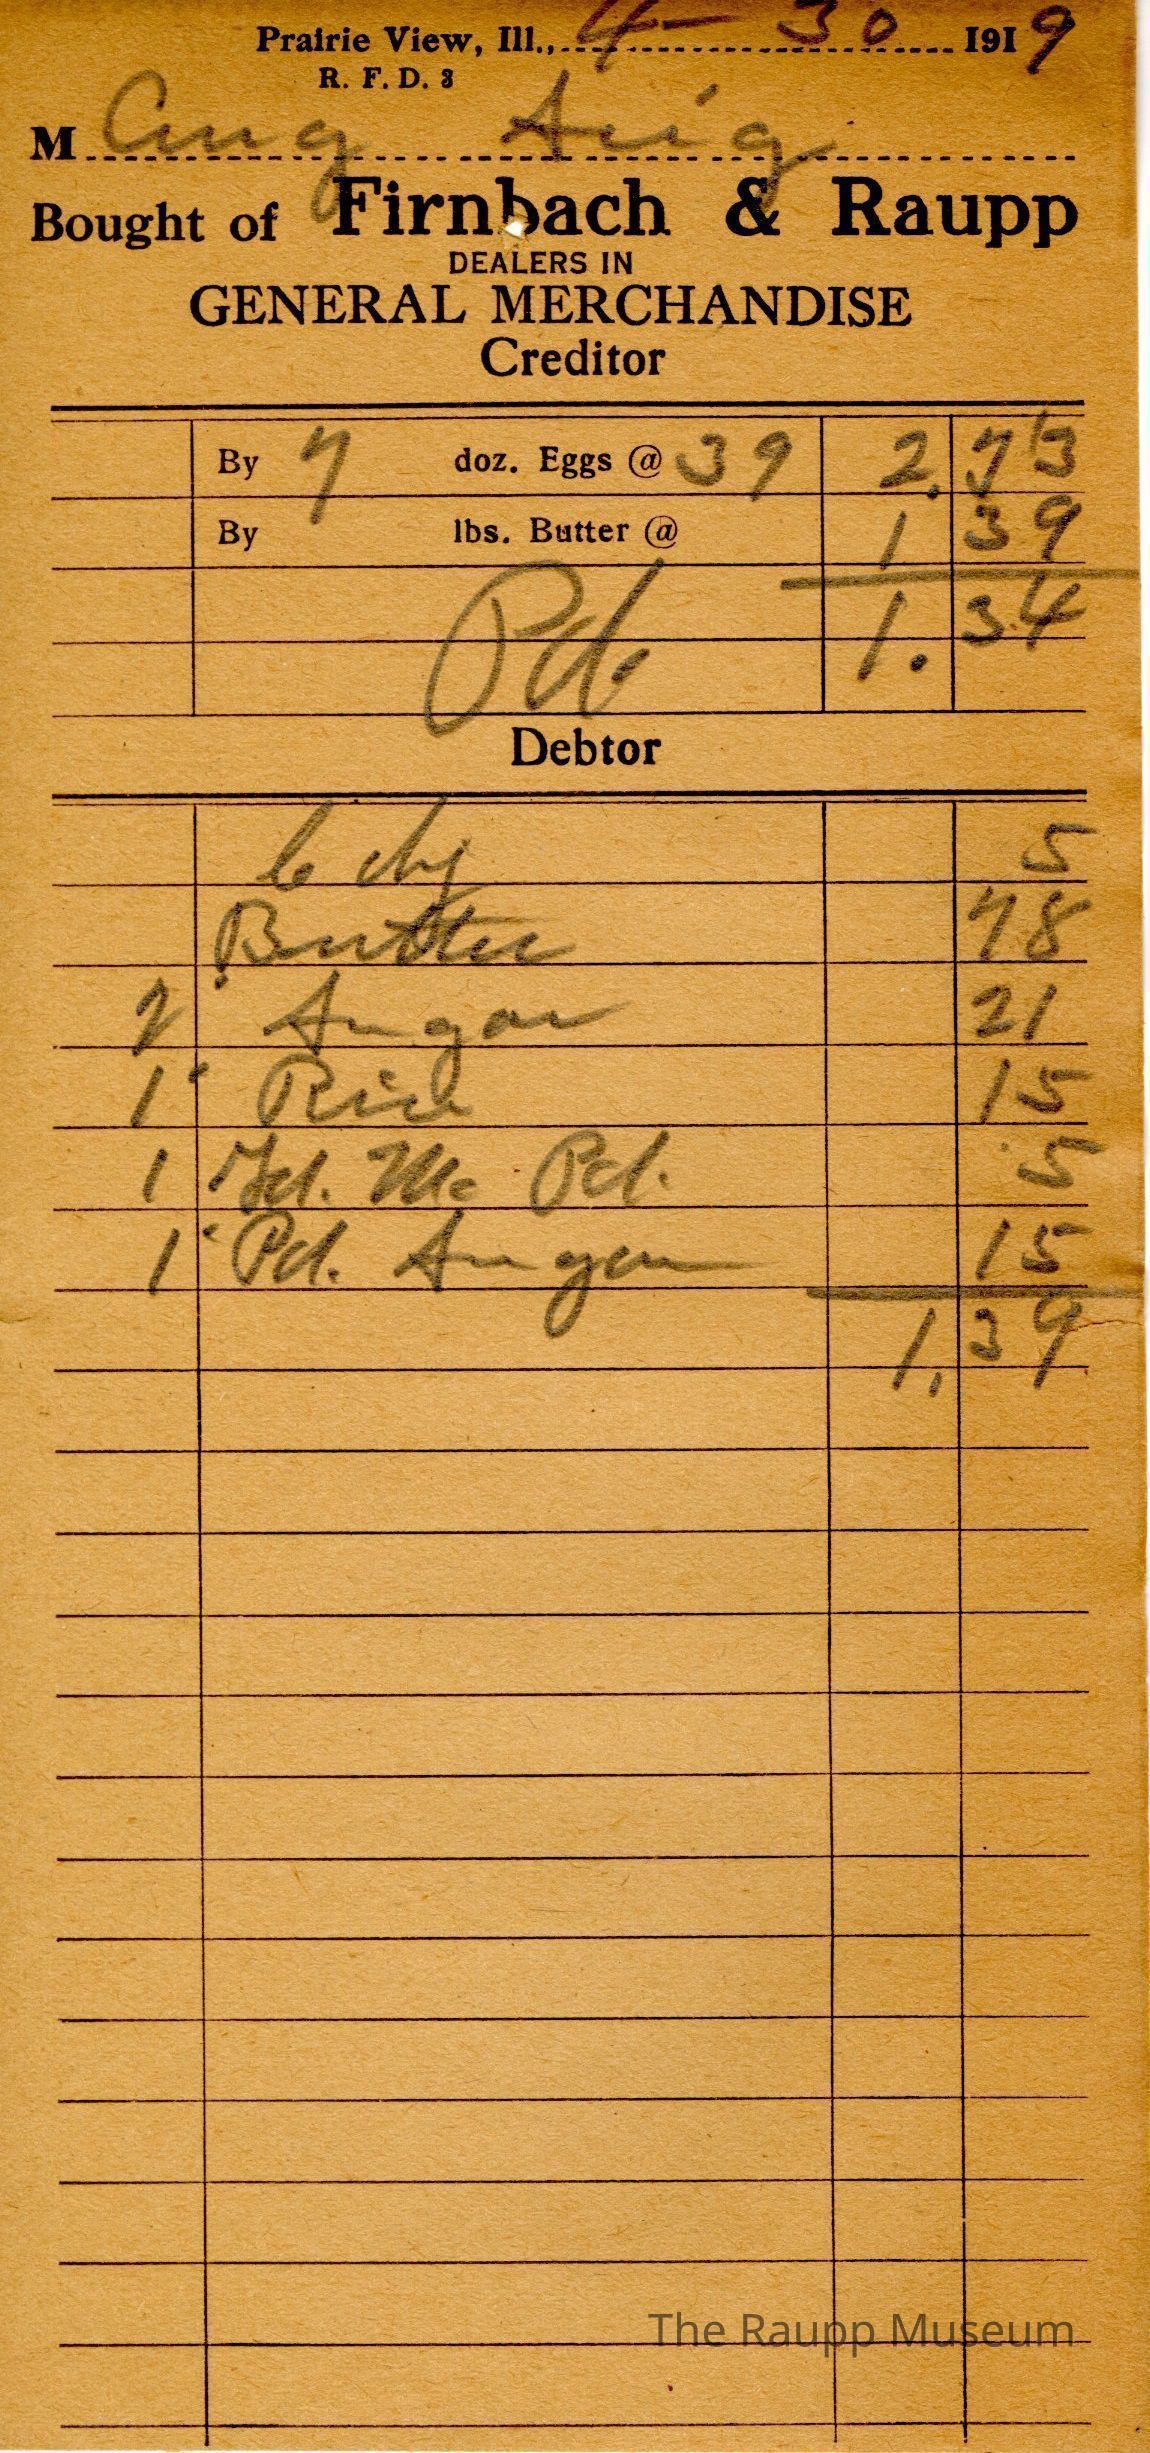 Prairie View, Ill., 4-30 1919
R. F. D. 3
M Aug Sig
Bought of Firnbach & Raupp
DEALERS IN
GENERAL MERCHANDISE
Creditor
By 7 doz. Eggs @ 39 2.73
By lbs. Butter @ 1 39
1.34
Pd.
Debtor
5
Butter 78
2 Sugar 21
1 Rice 15
1 Pd. 5
1 Pd. Sugar 15
1,39
The Raupp Museum